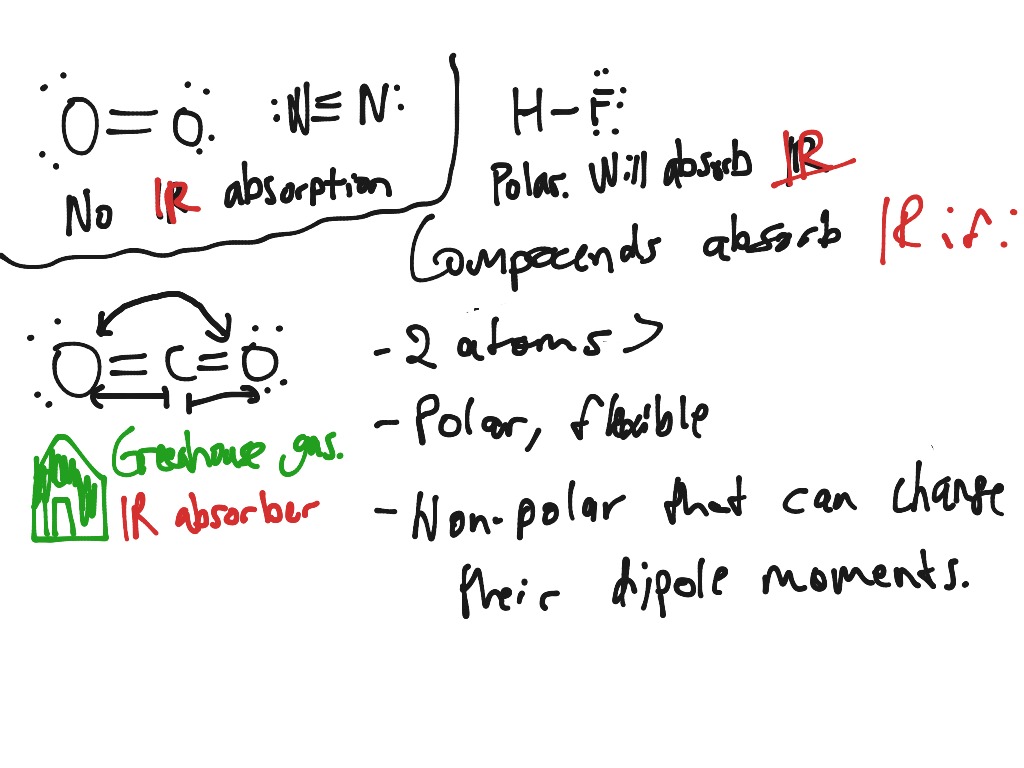 O=O :N≡N:
No IR absorption
H-F
Polar. Will absorb IR
Compocends absorb IR if:
O=C=O
Greshouse gas.
IR absorber
- 2 atoms >
- Polar, flexible
- Non-polar that can change
their dipole moments.